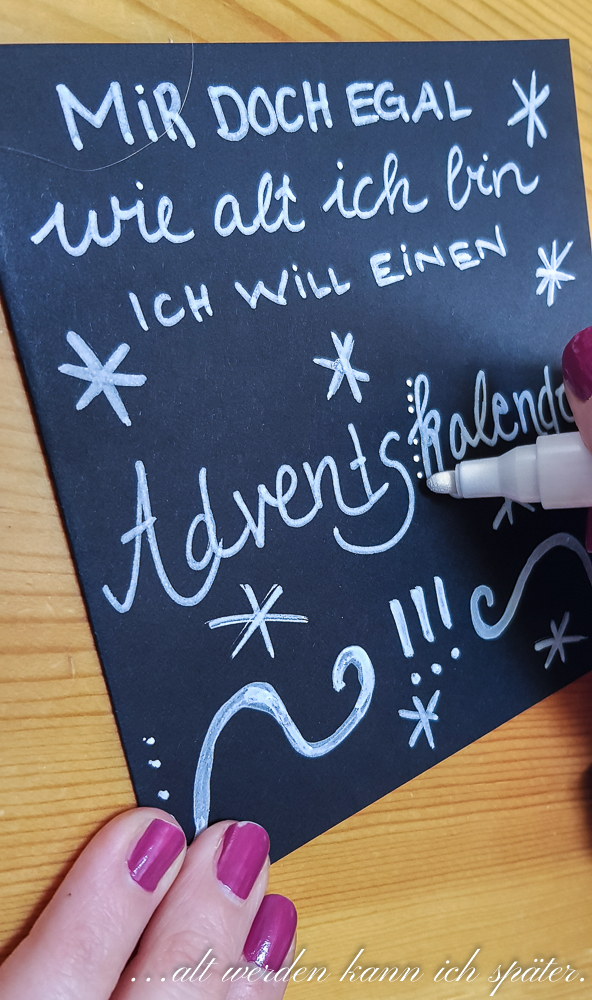 MIR DOCH EGAL
wie alt ich bin
ICH WILL EINEN
Adventskalende
!!!
...alt werden kann ich später.